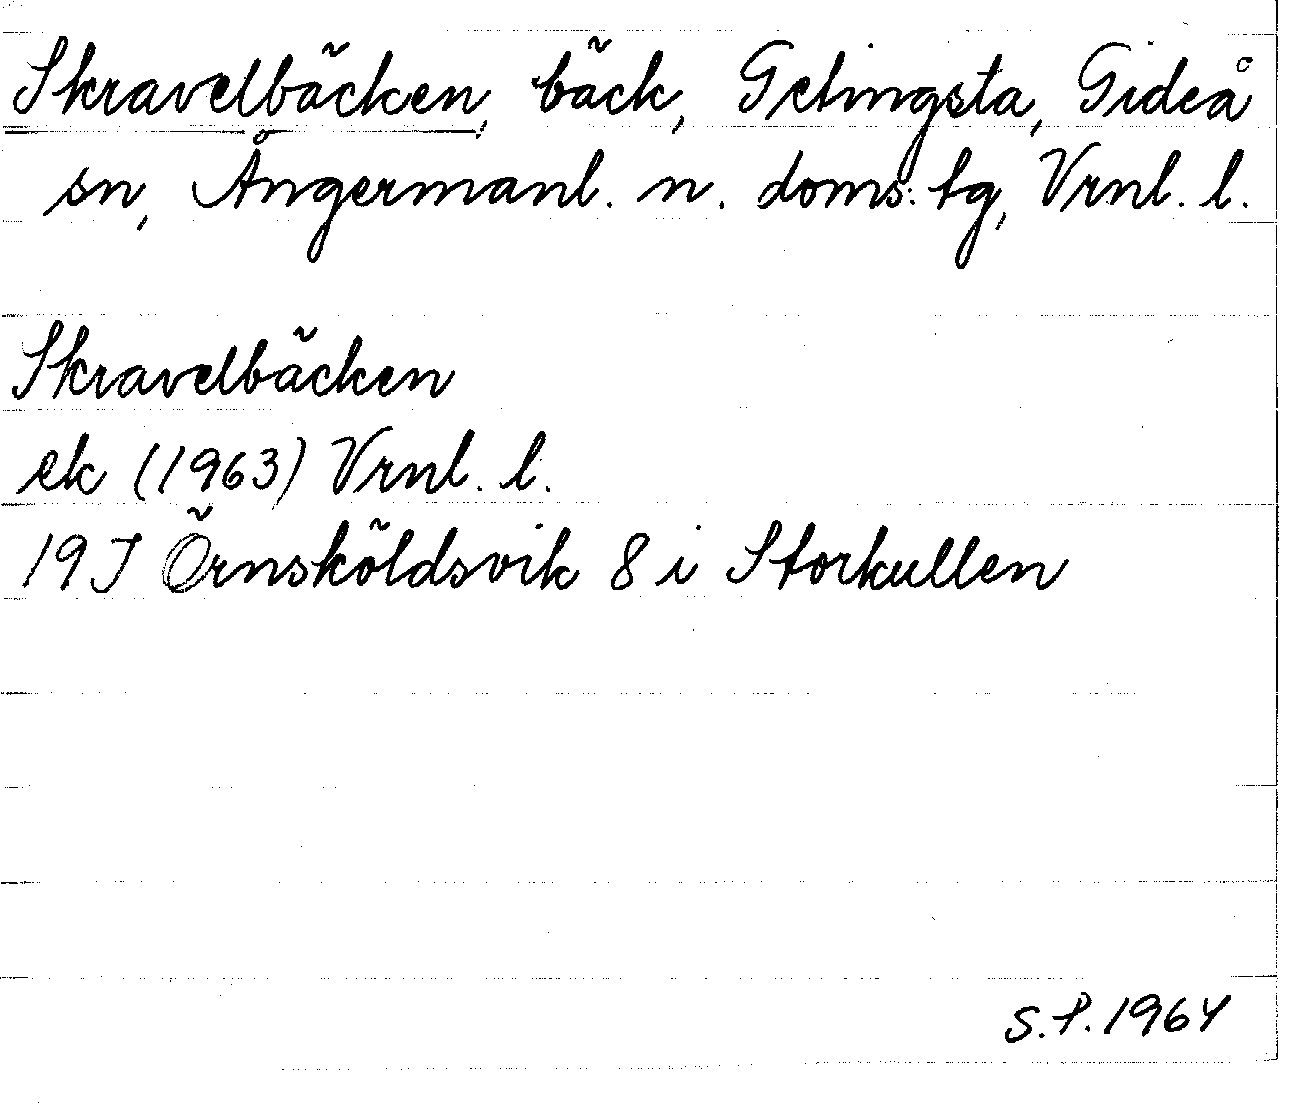 Skravelbäcken, bäck, Gelingsta, Gideå
sn, Ångermanl. n. doms. tg, Vrnl. l.
Skravelbäcken
ek (1963) Vrnl. l.
19J Örnsköldsvik 8 i Storkullen
S.P. 1964